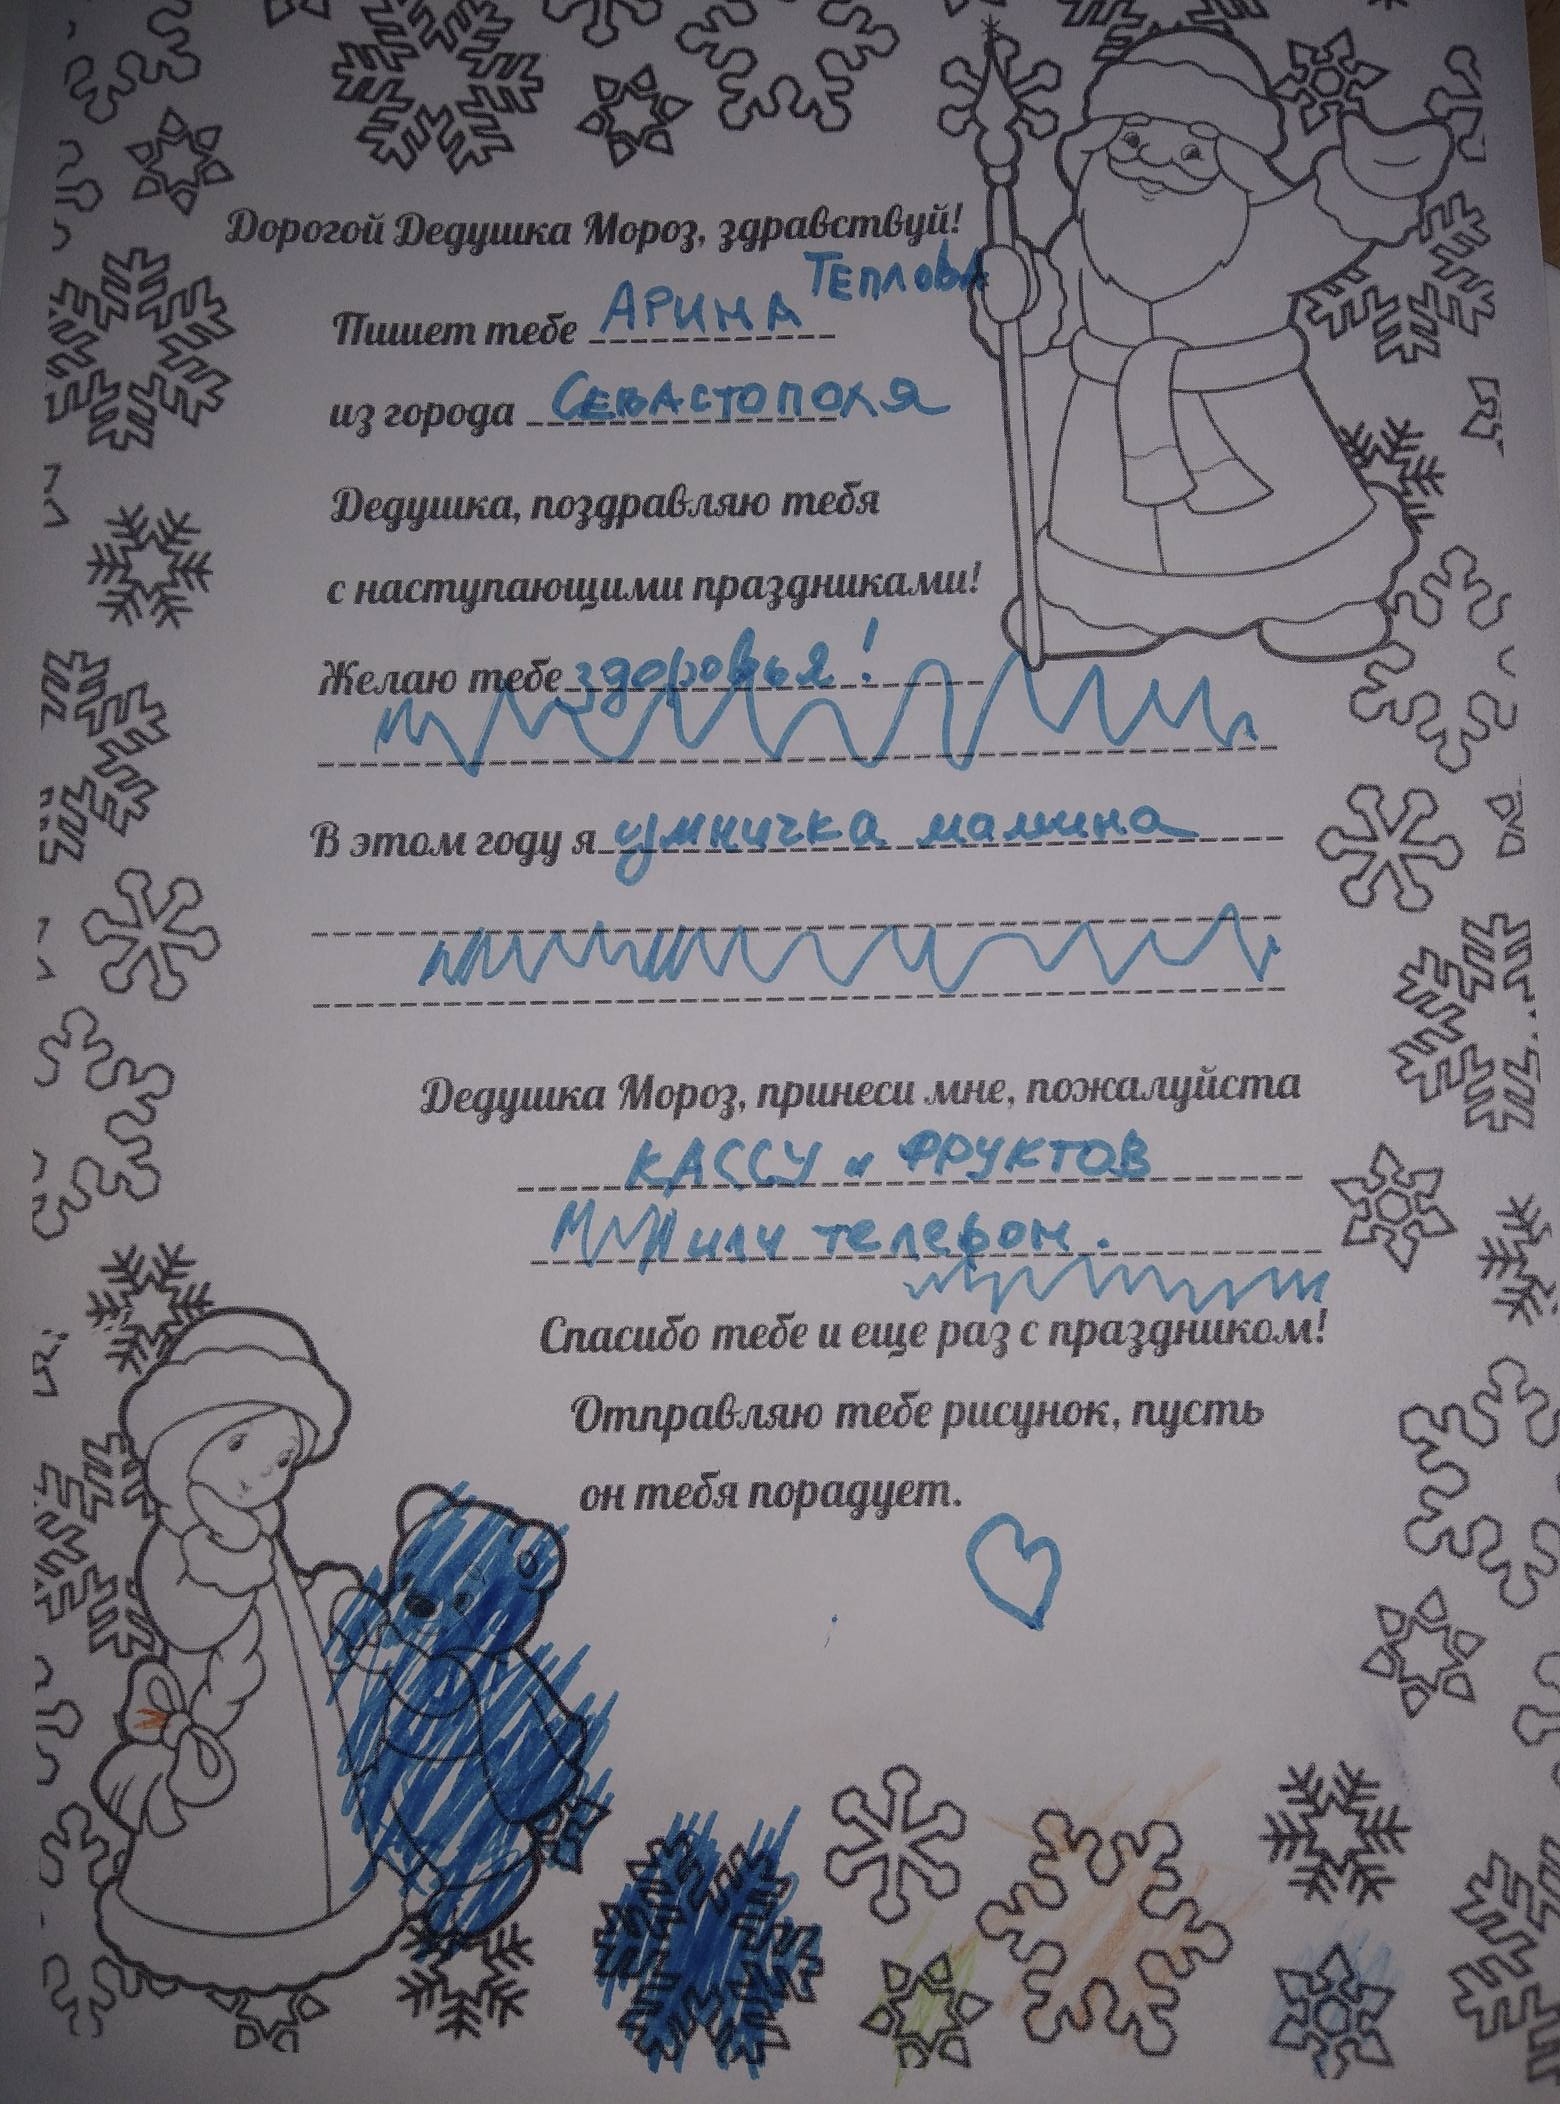 Дорогой Дедушка Мороз, здравствуй!
Пишет тебе АРИНА ТЕПЛОВА
из города СЕВАСТОПОЛЯ
Дедушка, поздравляю тебя
с наступающими праздниками!
Желаю тебе здоровья!
В этом году я умничка мамина
Дедушка Мороз, принеси мне, пожалуйста
КАССУ и ФРУКТОВ
или телефон.
Спасибо тебе и еще раз с праздником!
Отправляю тебе рисунок, пусть
он тебя порадует.